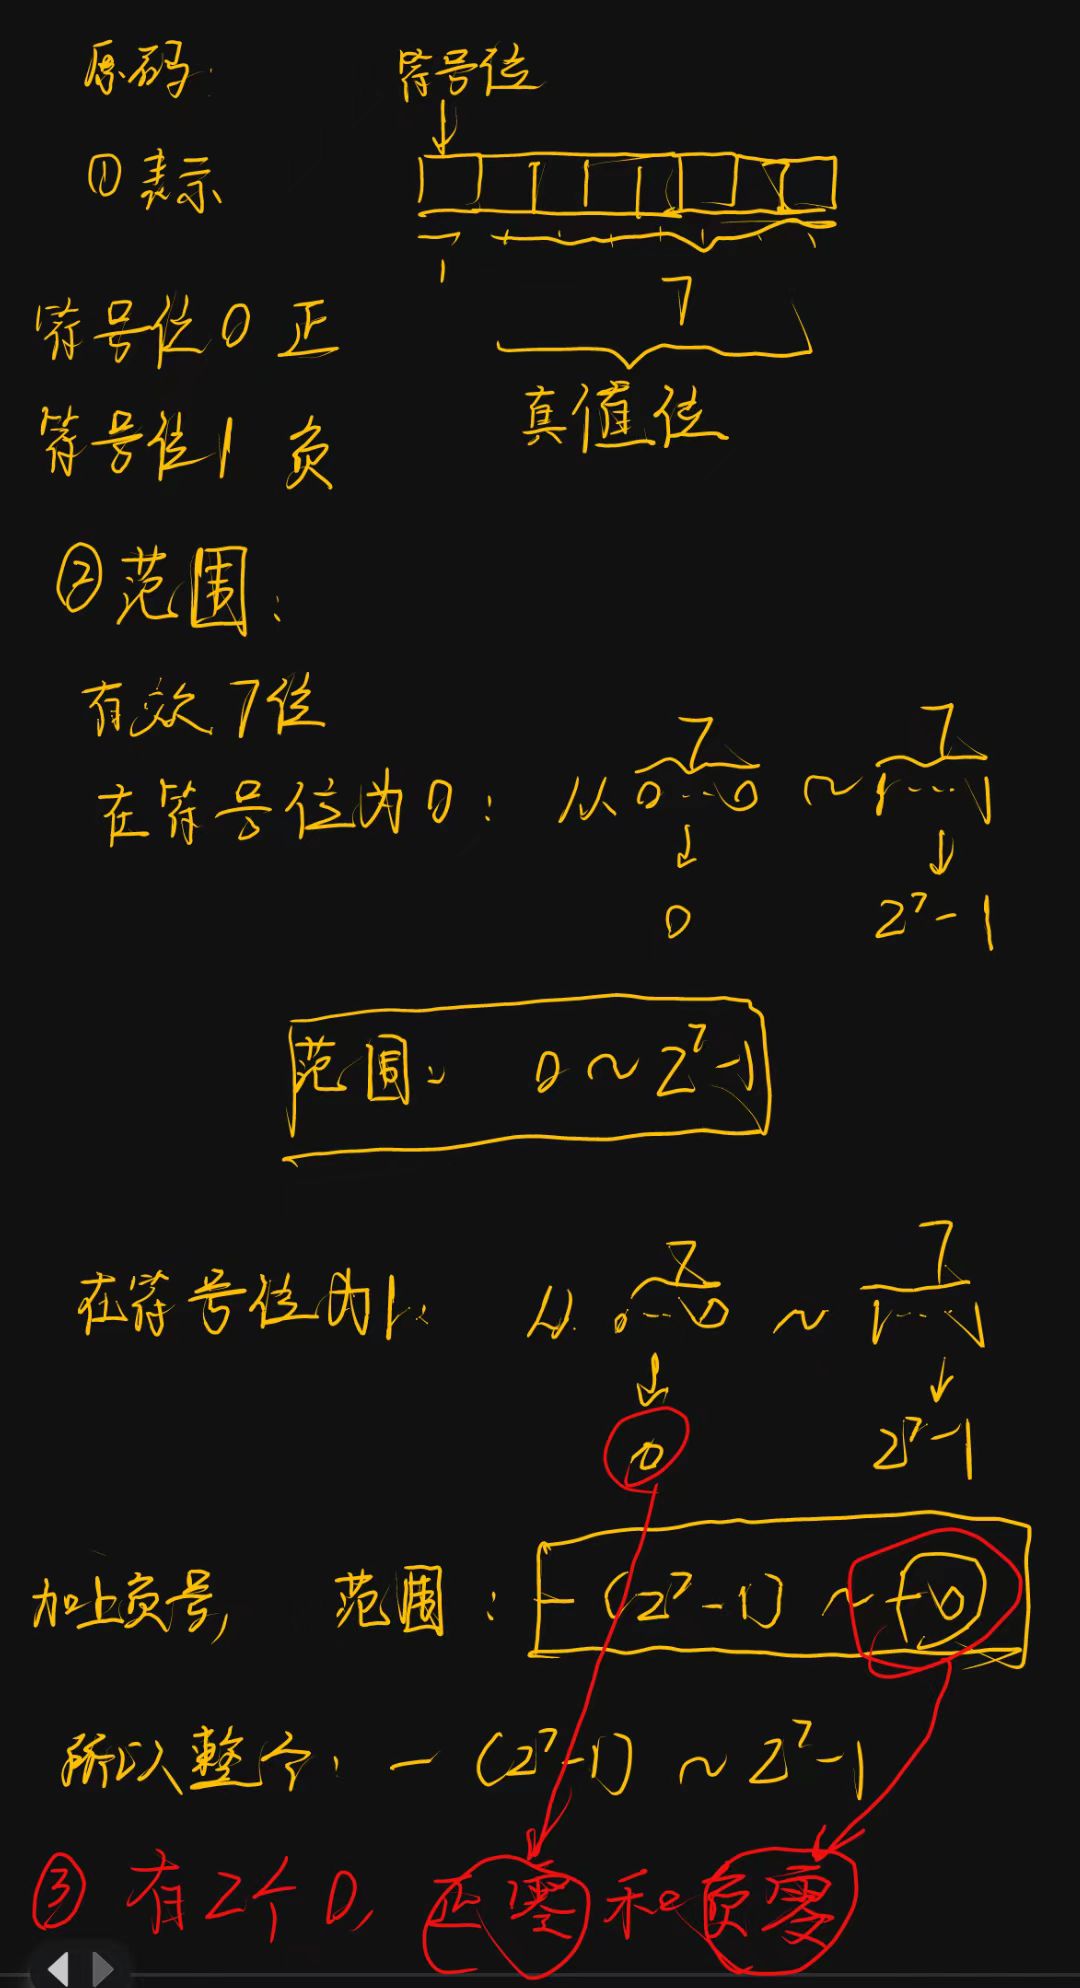 原码: 符号位
①表示
1 7
符号位0 正
真值位
符号位1 负
②范围:
有效7位
7 7
在符号位为0: 从0...0 ~ 1...1
0 2⁷-1
范围: 0 ~ 2⁷-1
7 7
在符号位为1: 从0...0 ~ 1...1
0 2⁷-1
加上负号, 范围: -(2⁷-1) ~ -0
所以整个: -(2⁷-1) ~ 2⁷-1
③有2个0, 正零和负零